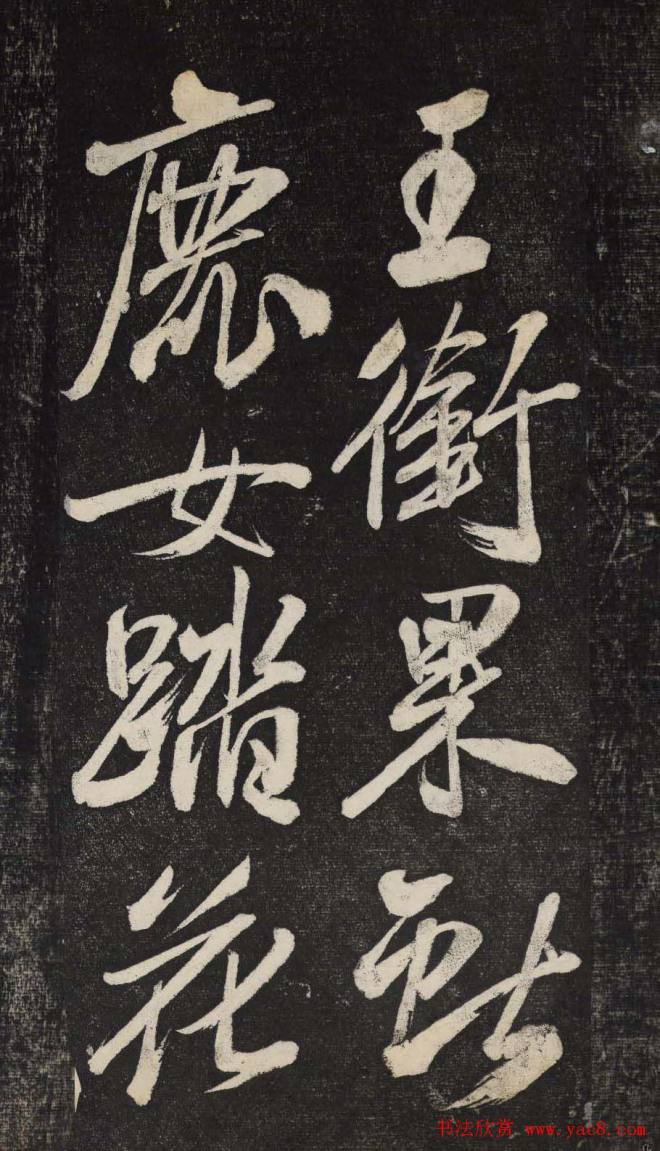 王銜果獻
鹿女踏花
书法欣赏 www.yac8.com